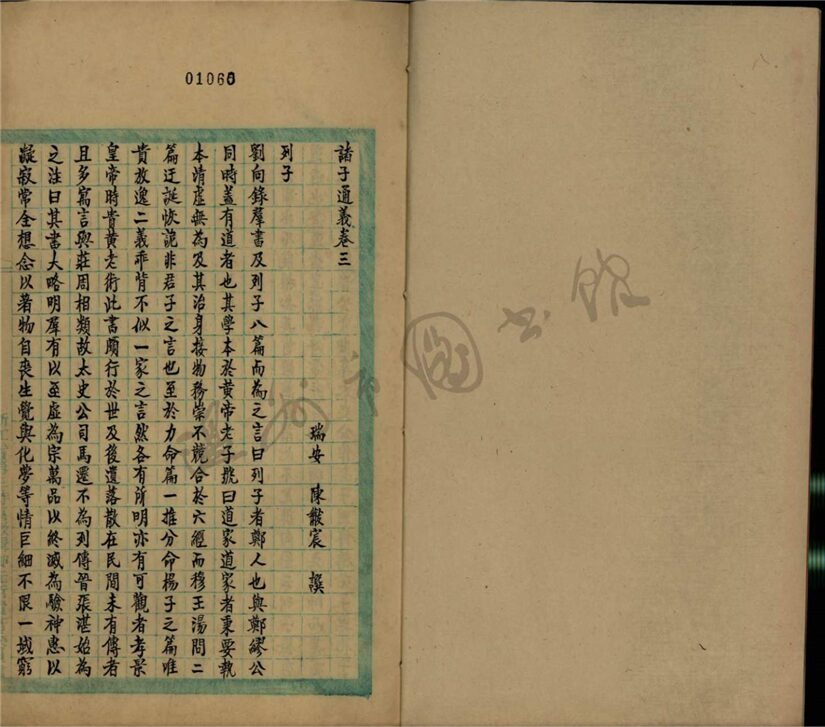 01066
諸子通義卷三
瑞安 陳黻宸 譔
列子
劉向錄羣書及列子八篇而為之言曰列子者鄭人也與鄭繆公
同時蓋有道者也其學本於黃帝老子號曰道家道家者秉要執
本清虛無為及其治身接物務崇不競合於六經而穆王湯問二
篇迂誕恢詭非君子之言也至於力命篇一推分命楊子之篇唯
貴放逸二義乖背不似一家之言然各有所明亦有可觀者孝景
皇帝時貴黃老術此書頗行於世及後遺落散在民間未有傳者
且多寓言與莊周相類故太史公司馬遷不為列傳晉張湛始為
之注曰其書大略明羣有以至虛為宗萬品以終滅為驗神惠以
凝寂常全想念以著物自喪生覺與化夢等情巨細不限一域窮
圖書館